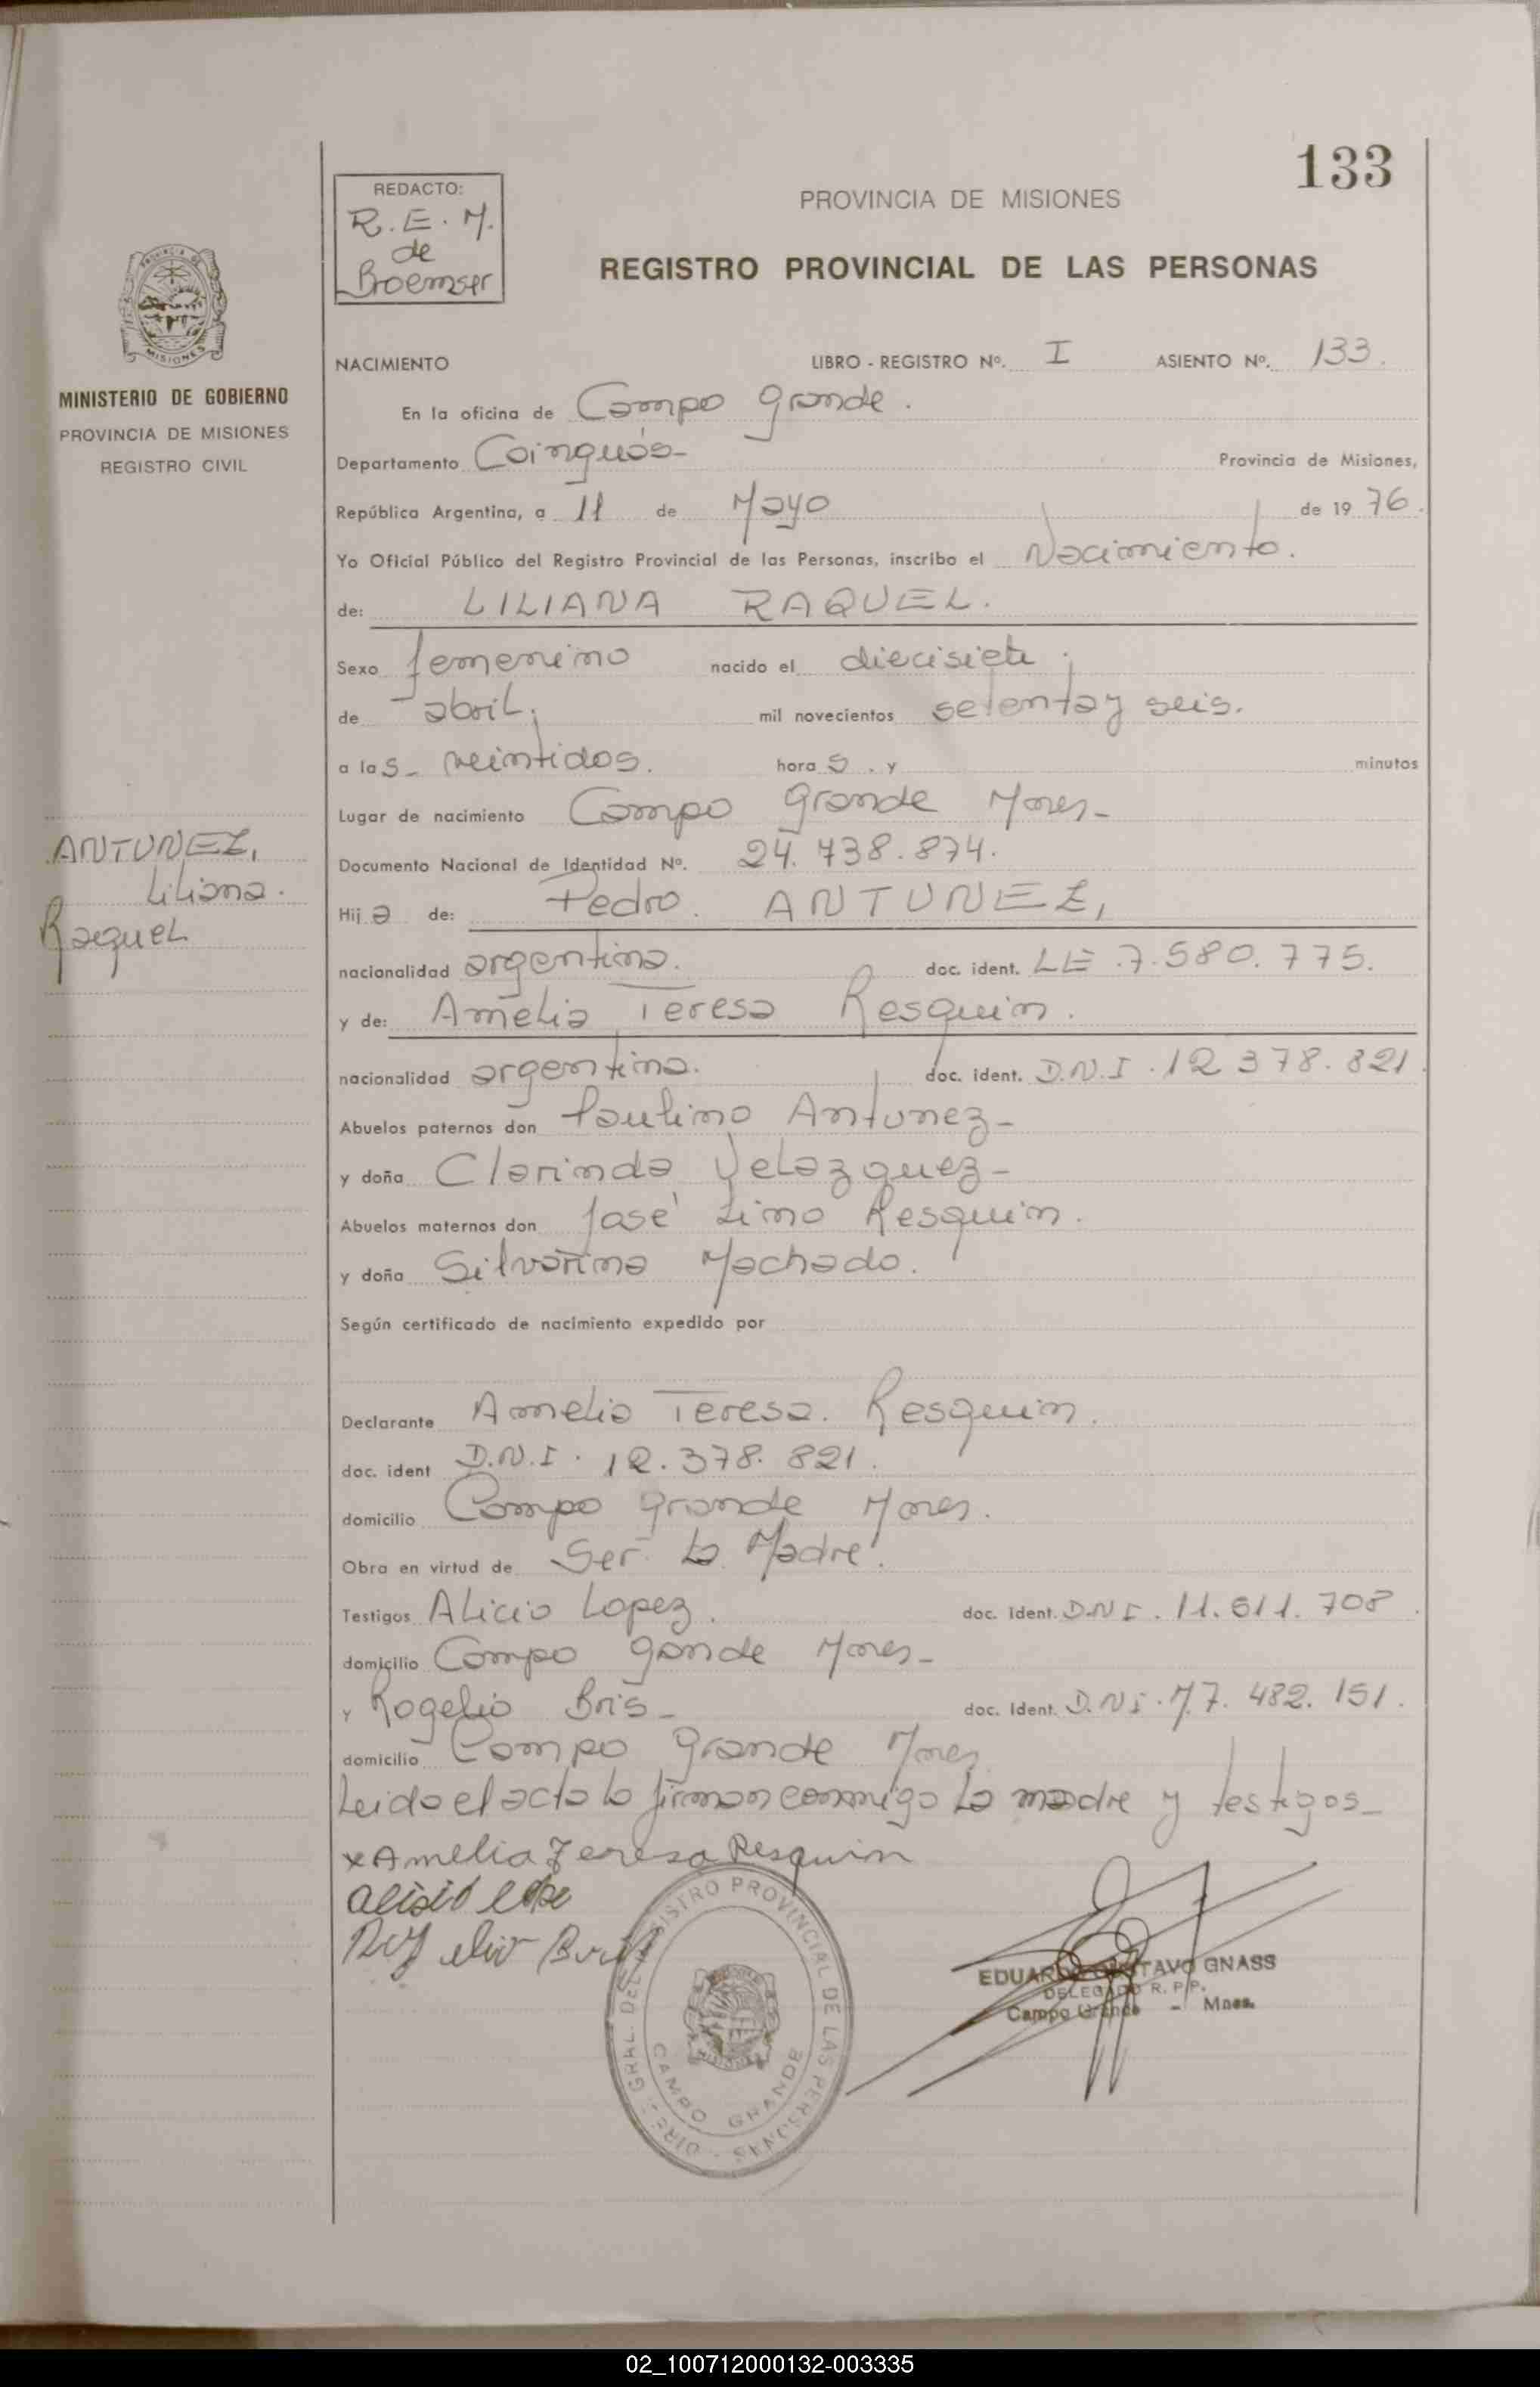 133
REDACTO:
R. E. M.
de
Broemser
PROVINCIA DE MISIONES
REGISTRO PROVINCIAL DE LAS PERSONAS
MISIONES
MINISTERIO DE GOBIERNO
PROVINCIA DE MISIONES
REGISTRO CIVIL
NACIMIENTO LIBRO - REGISTRO Nº. I ASIENTO Nº. 133.
En la oficina de Campo Grande.
Departamento Cainguás- Provincia de Misiones,
República Argentina, a 11 de Mayo de 19 76.
Yo Oficial Público del Registro Provincial de las Personas, inscribo el Nacimiento.
de: LILIANA RAQUEL.
Sexo femenino nacido el diecisiete.
de abril. mil novecientos setenta y seis.
a las- veintidos. hora s. y minutos
Lugar de nacimiento Campo Grande Mnes-
ANTUNEZ,
Liliana.
Raquel
Documento Nacional de Identidad Nº. 24.738.874.
Hij a de: Pedro. ANTUNEZ,
nacionalidad argentina. doc. ident. LE.7.580.775.
y de: Amelia Teresa Resquin.
nacionalidad argentina. doc. ident. D.N.I. 12 378.821.
Abuelos paternos don Paulino Antunez-
y doña Clarinda Velazquez-
Abuelos maternos don José Lino Resquin.
y doña Silvarina Machado.
Según certificado de nacimiento expedido por
Declarante Amelia Teresa. Resquin.
doc. ident D.N.I. 12.378.821.
domicilio Campo Grande Mnes.
Obra en virtud de Ser la Madre.
Testigos Alicio Lopez. doc. ident. D.N I. 11.611.708.
domicilio Campo Gande Mnes-
y Rogelio Bris- doc. Ident. D.N I. M7.482.151.
domicilio Campo Grande Mnes
Leida el acta la firman conmigo la madre y testigos-
x Amelia Teresa Resquin
DIREC. GRAL. DEL REGISTRO PROVINCIAL DE LAS PERSONAS
CAMPO GRANDE
EDUARDO GUSTAVO GNASS
DELEGADO R. P. P.
Campo Grande - Mnes.
02_100712000132-003335